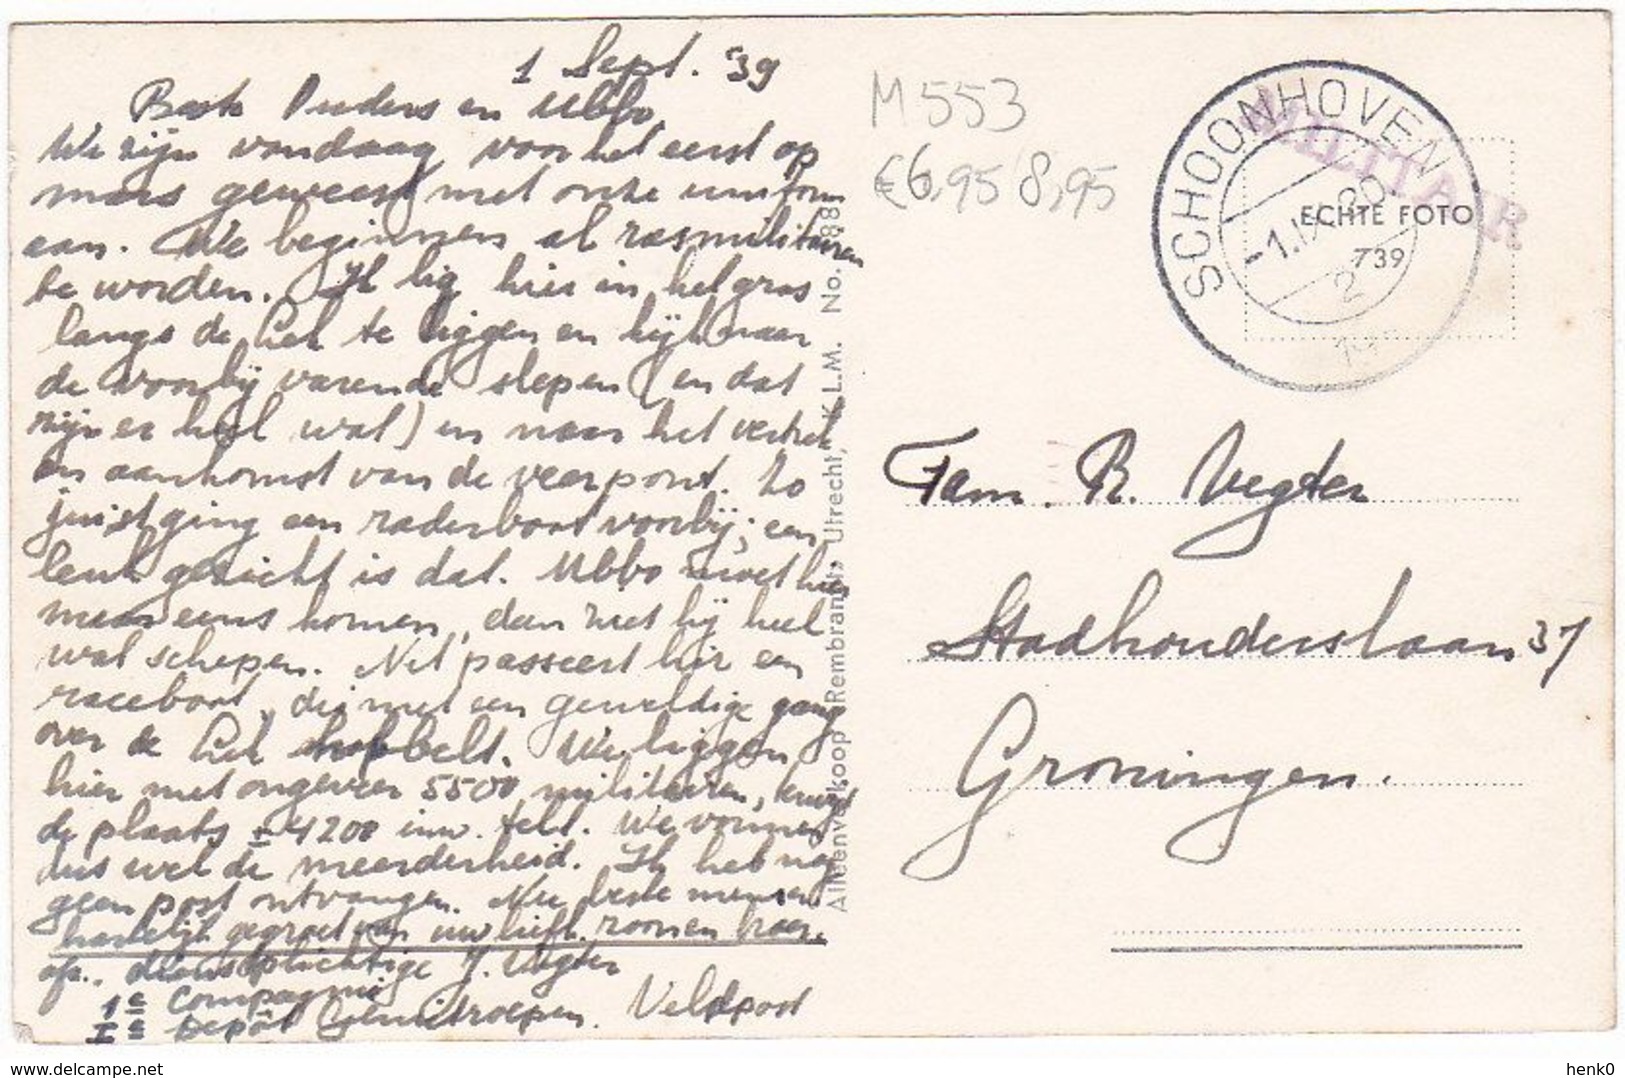 1 Sept. '39
Beste Ouders en Ubbo,
We zijn vandaag voor het eerst op
mars geweest met onze uniform
aan. We beginnen al ras militairen
te worden. Ik lig hier in het gras
langs de Lek te liggen en kijk naar
de voorbij varende slepen (en dat
zijn er heel wat) en naar het vertrek
en aankomst van de veerpont. Zo
juist ging een raderboot voorbij; een
leuk gezicht is dat. Ubbo moet hier
maar eens komen, dan ziet hij heel
wat schepen. Net passeert hier een
raceboot, die met een geweldige gang
over de Lek hobbelt. We liggen
hier met ongeveer 5500 militairen, terwijl
de plaats ± 4200 inw. telt. We vormen
dus wel de meerderheid. Ik heb nog
geen post ontvangen. Nu beste mensen
hartelijk gegroet van uw liefh. zoon en broer.
afz. dienstplichtige J. Vegter
1e Compagnie
Ie Depôt Genietroepen. Veldpost
Alleenverkoop Rembrandt, Utrecht, K.L.M. No. 88
M553
€6,95 8,95
SCHOONHOVEN
-1.IX
2
MILITAIR
ECHTE FOTO
739
Fam. R. Vegter
Stadhouderslaan 37
Groningen.
henk0